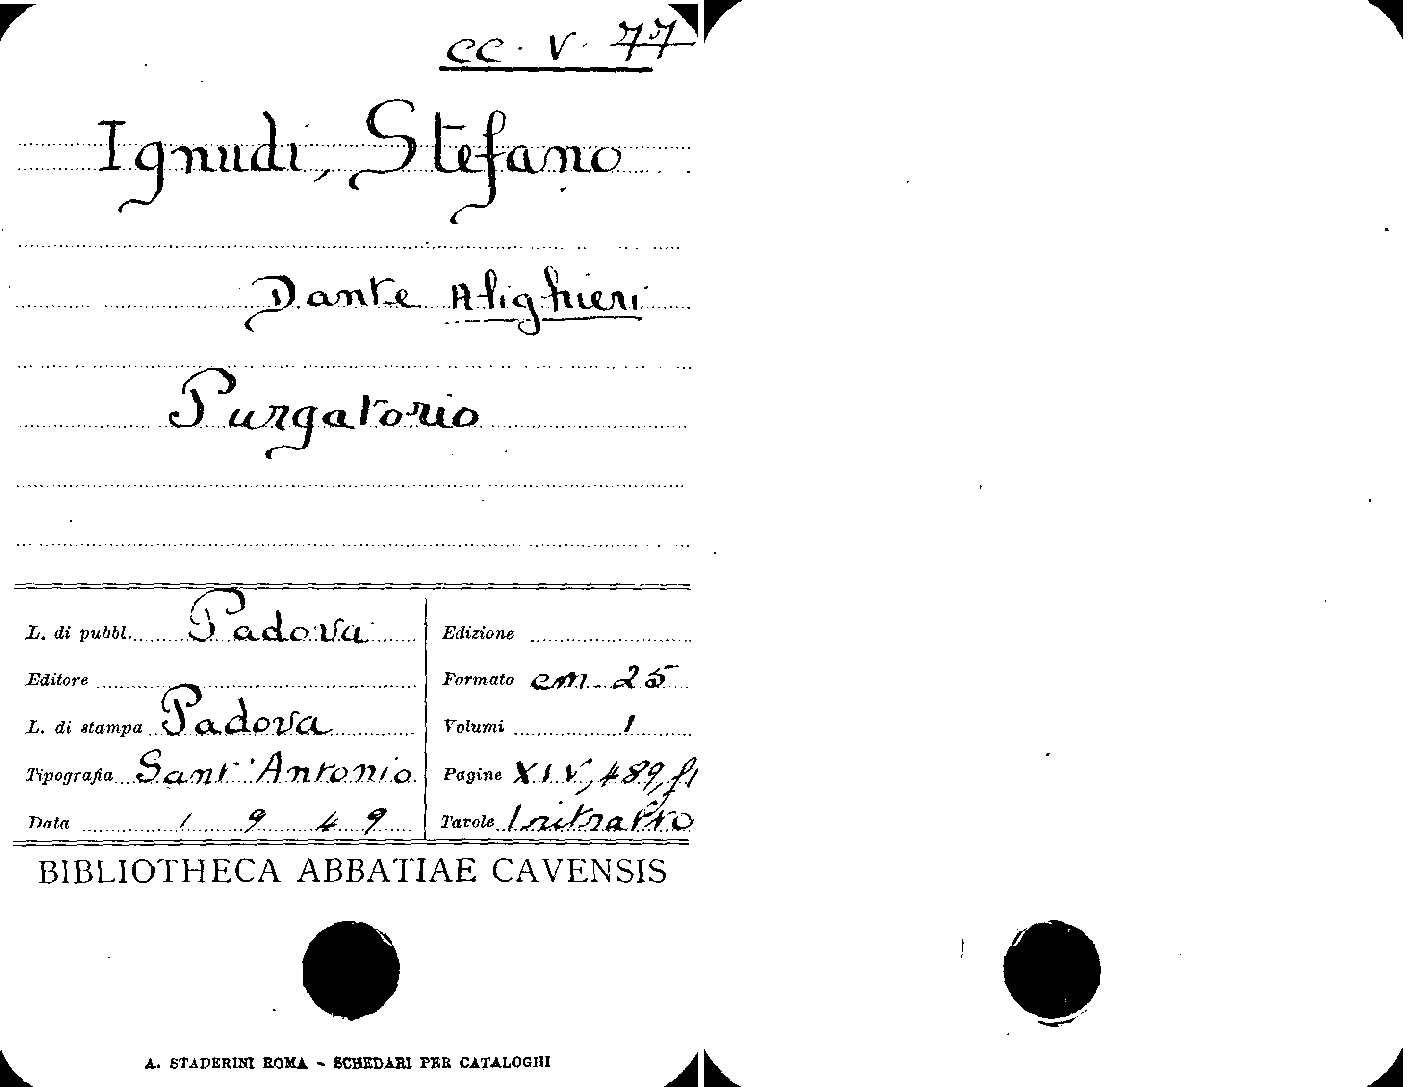 cc. V. 77
Ignudi, Stefano
Dante Alighieri
Purgatorio
L. di pubbl. Padova
Editore
L. di stampa Padova
Tipografia Sant'Antonio
Data 1949
Edizione
Formato cm. 25
Volumi 1
Pagine XIV, 489,
Tavole 1 ritratto
BIBLIOTHECA ABBATIAE CAVENSIS
A. STADERINI ROMA - SCHEDARI PER CATALOGHI